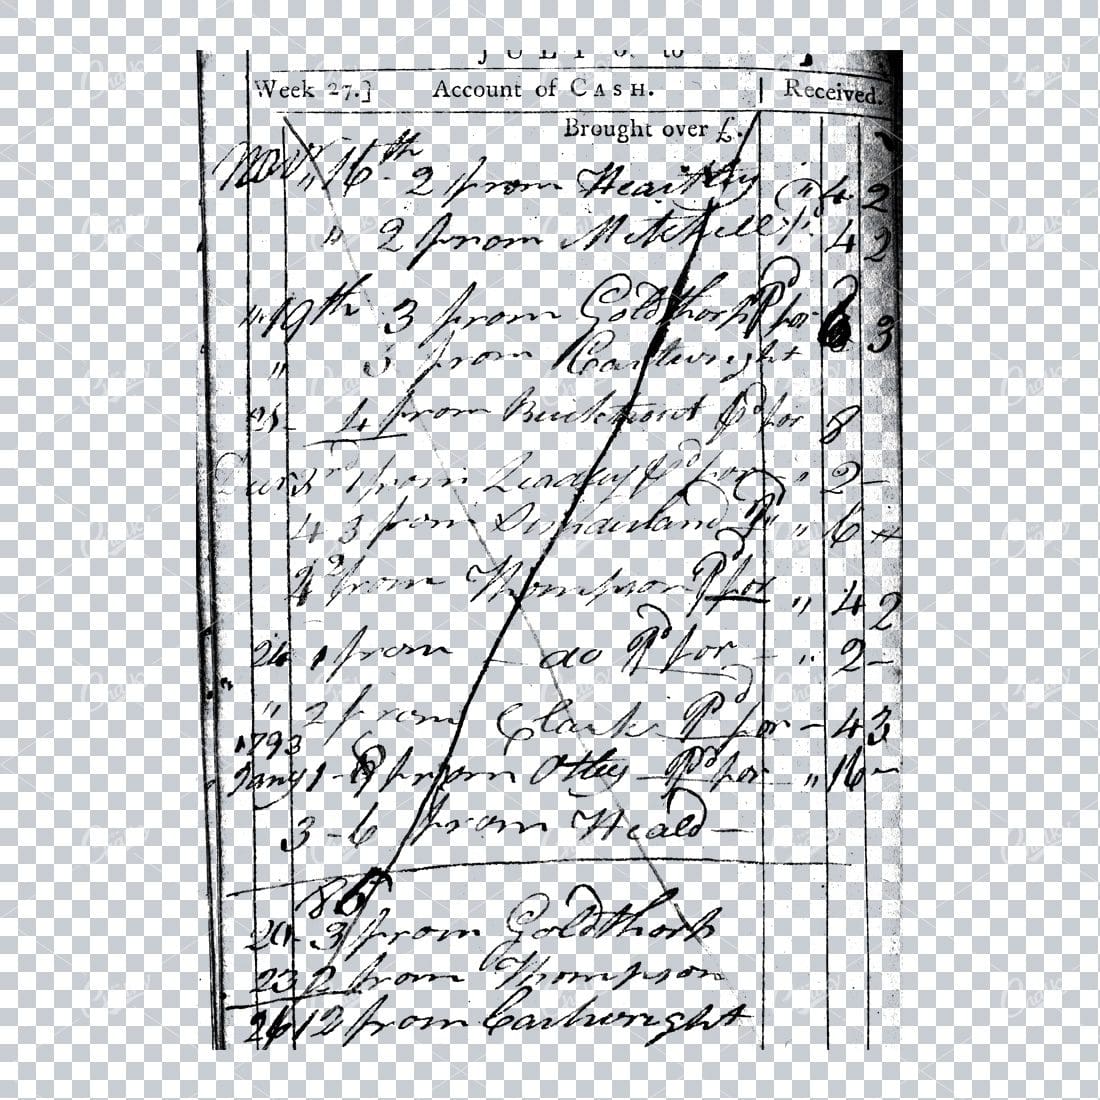 JULY to
Week 27.] Account of CASH. Received.
Brought over £.
Novr 16th 2 from Heartley " 4 2
" 2 from Mitchell 4 2
" 19th 3 from Goldthorp Pd for 6 3
" 3 from Cartwright
25 - 4 from Pd for 8
Decr 3rd 1 from Pd for " 2 -
4 3 from Sutherland Pd " 6
2 from Thompson Pd for " 4 2
24 1 from - do Pd for - " 2 -
" 2 from Clark Pd for - 4 3
1793
Jany 1 - 8 from Otley Pd for " 16 -
3 - 6 from Heald -
20 3 from Goldthorp
23 2 from Thompson
26 12 from Cartwright